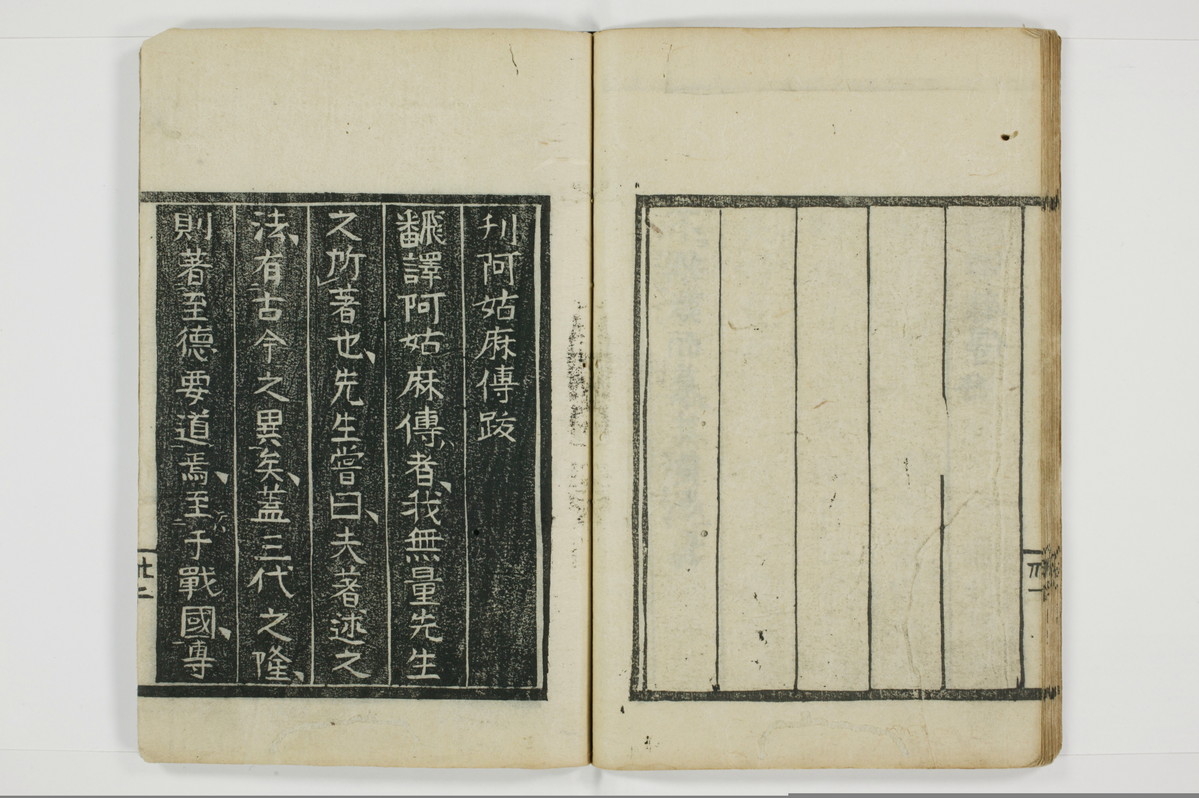 刋阿姑麻傳跋
飜譯阿姑麻傳、者、我無量先生
之所著也、先生嘗曰、夫著述之
法、有古今之異矣、蓋三代之隆、
則著至德要道焉、至于戰國、專
廿二